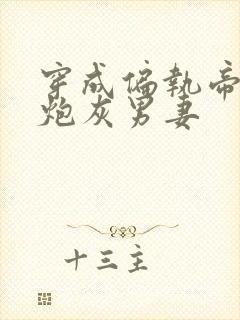 穿成偏執帝
炮灰男妻
十三主